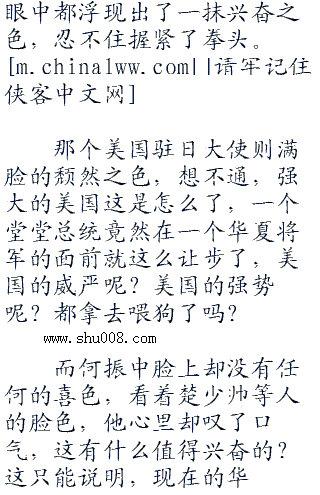 眼中都浮现出了一抹兴奋之
色，忍不住握紧了拳头。
[m.china1ww.com||请牢记住
侠客中文网]
那个美国驻日大使则满
脸的颓然之色，想不通，强
大的美国这是怎么了，一个
堂堂总统竟然在一个华夏将
军的面前就这么让步了，美
国的威严呢？美国的强势
呢？都拿去喂狗了吗？
www.shu008.com
而何振中脸上却没有任
何的喜色，看着楚少帅等人
的脸色，他心里却叹了口
气，这有什么值得兴奋的？
这只能说明，现在的华